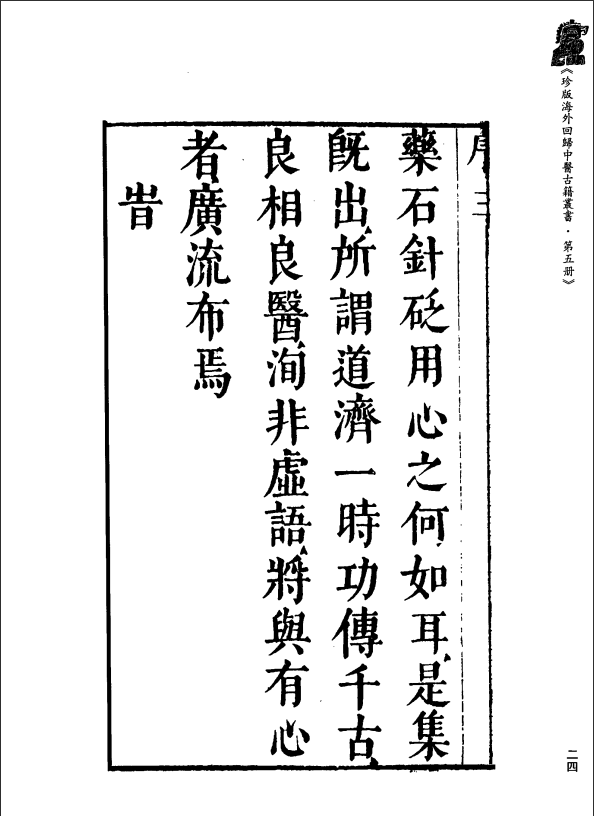 《珍版海外回歸中醫古籍叢書·第五册》
序三
藥石針砭用心之何如耳、是集
旣出、所謂道濟一時功傳千古、
良相良醫、洵非虛語、將與有心
者、廣流布焉
旹
二四